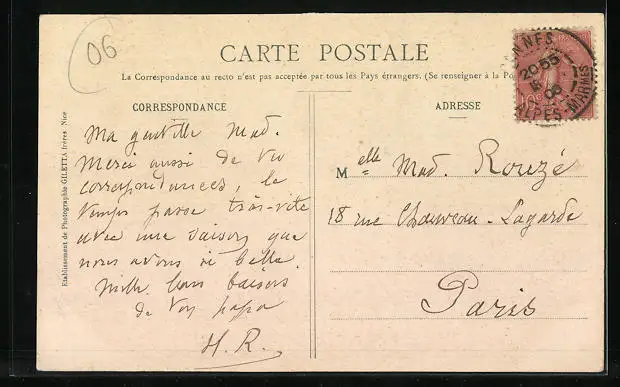 06
CARTE POSTALE
La Correspondance au recto n'est pas acceptée par tous les Pays étrangers. (Se renseigner à la Po
CORRESPONDANCE
Ma gentille Mad.
Merci aussi de
correspondances, le
temps passe très-vite
avec une saison que
nous avons si belle.
Mille bons baisers
de ton papa
H. R.
ADRESSE
Melle Mad. Rouzé
18 rue Chauveau-Lagarde
Paris
CANNES
20 55
06
ALPES-MARMES
Etablissement de Photographie GILETTA frères Nice